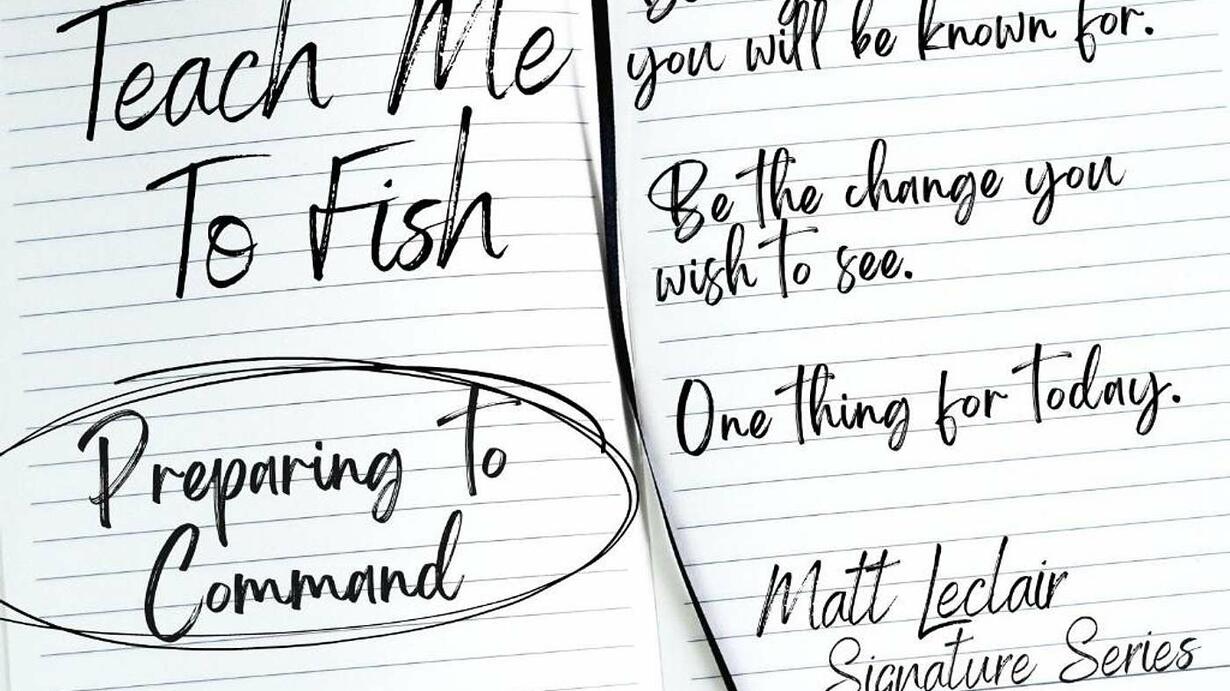 Teach Me
To Fish
Preparing To
Command
you will be known for.
Be the change you
wish to see.
One thing for today.
Matt Leclair
Signature Series